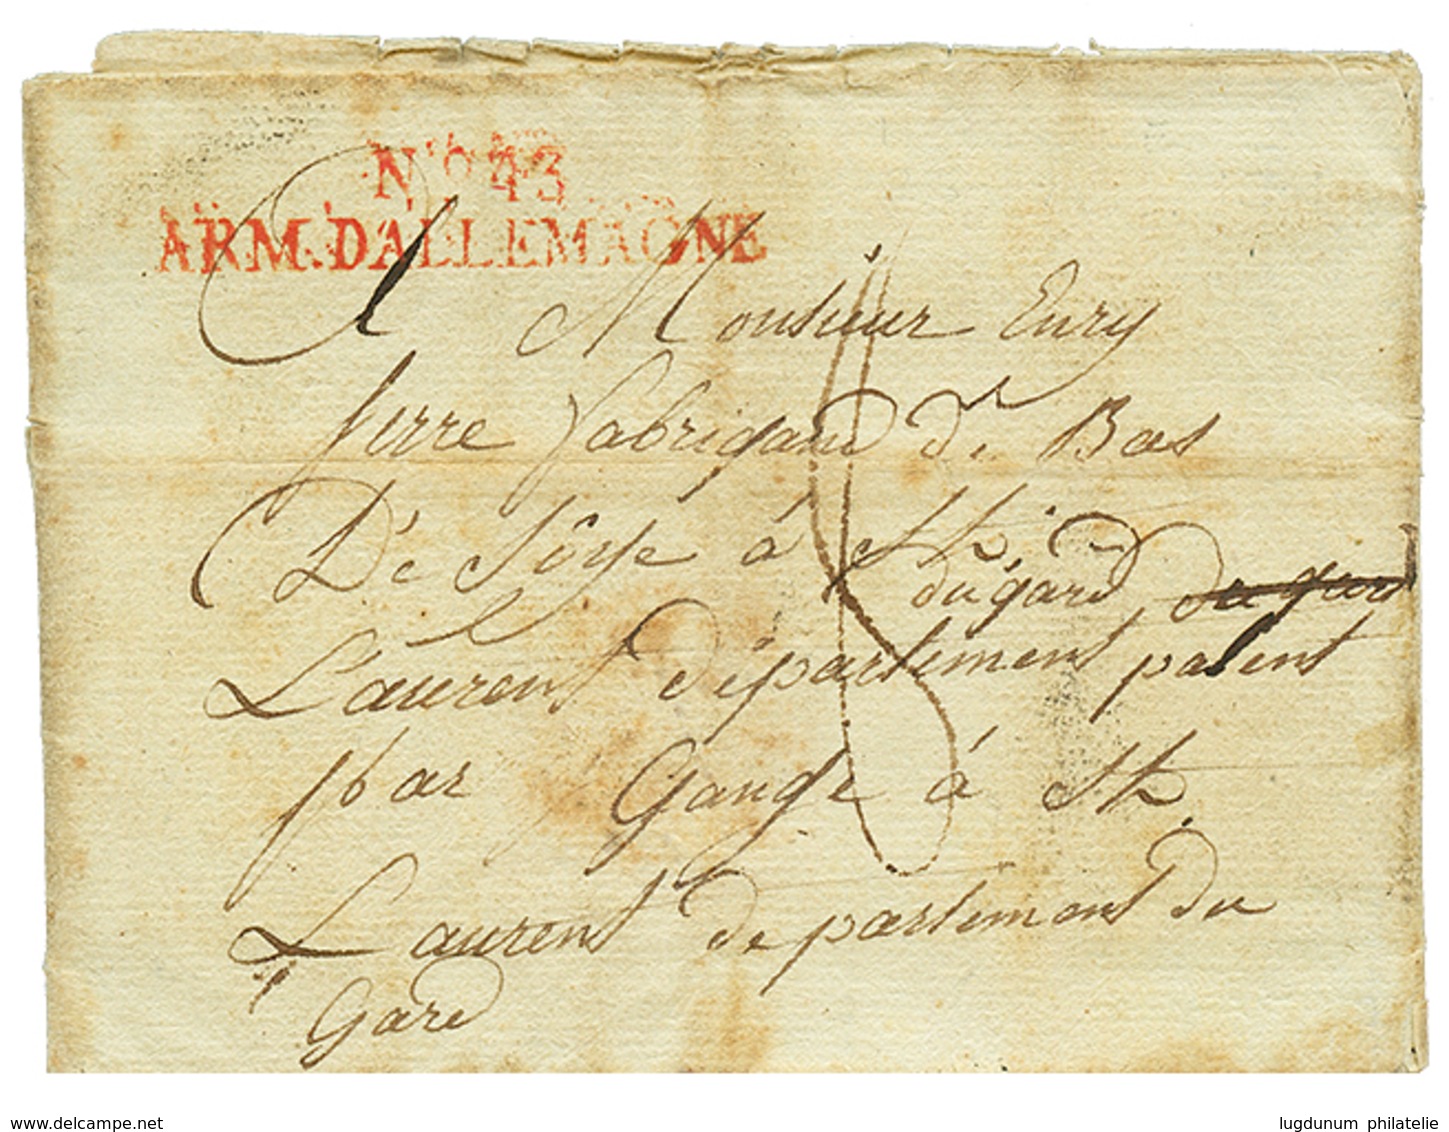 N° 43
ARM. D'ALLEMAGNE
A Monsieur Eury
serre fabrigand de Bas
De Sôye à St.
du gard du gard
Laurent département pasent
par Gange à St.
Laurent departement du
Gard
www.delcampe.net
lugdunum philatelie